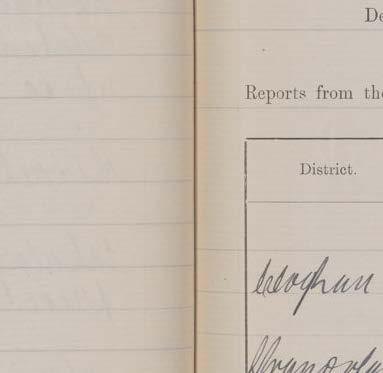 De
Reports from the
District.
Cloghan